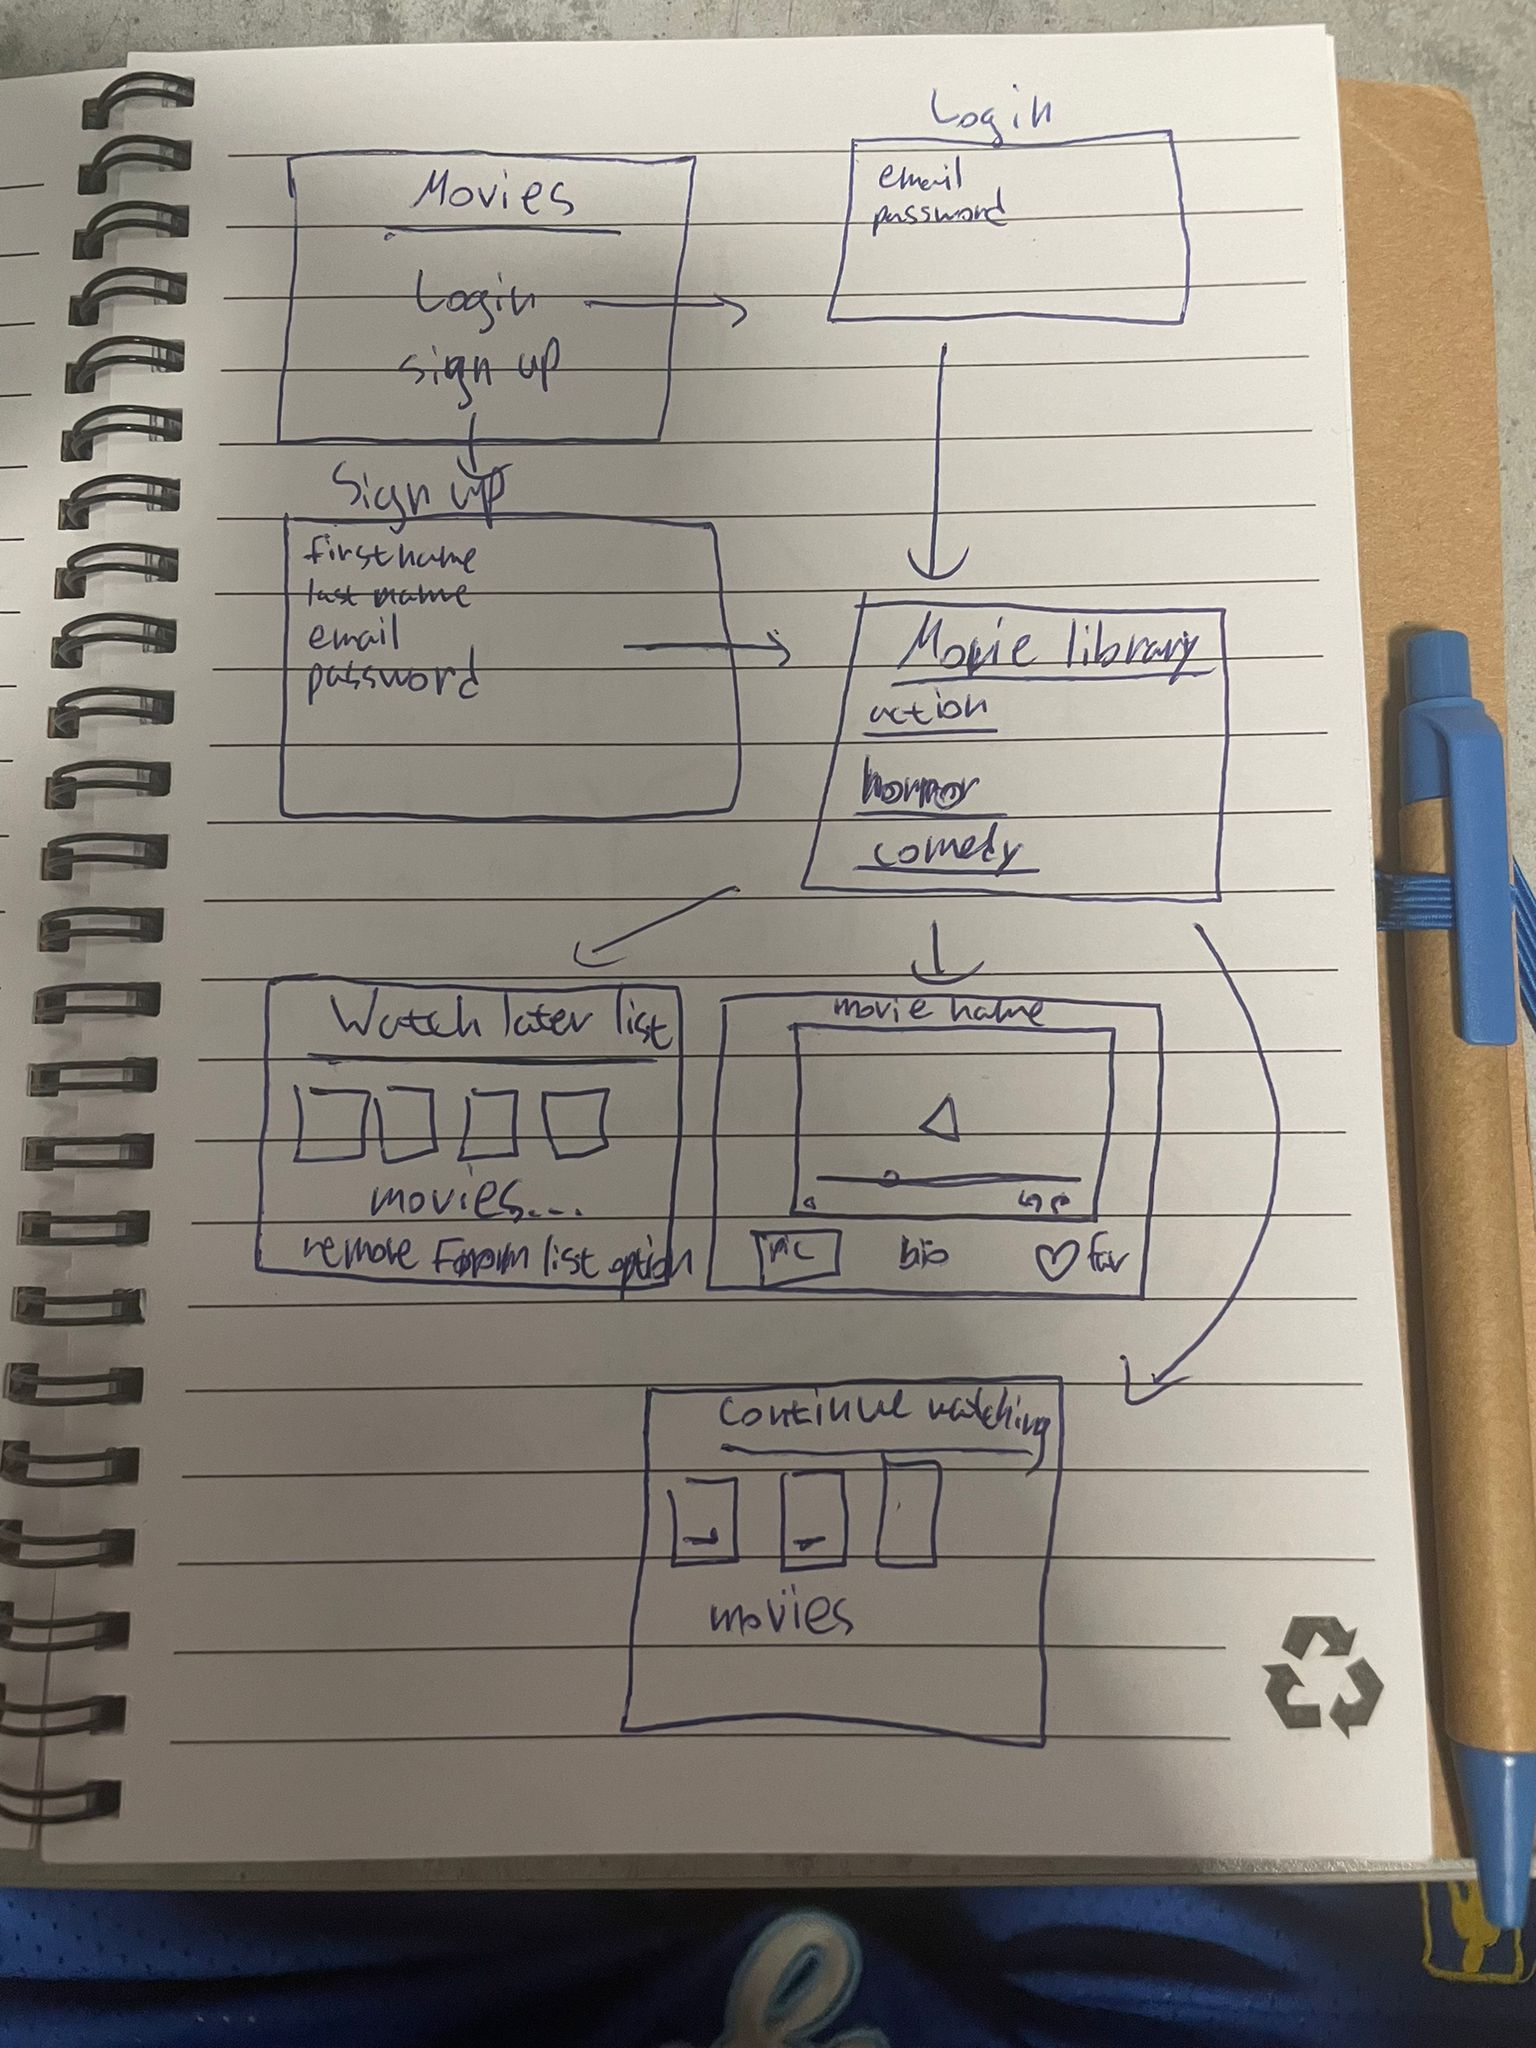 Login
Movies
email
password
Login
sign up
Sign up
first name
last name
email
password
Movie library
action
horror
comedy
Watch later list
movies...
remove From list option
movie name
pic
bio
fav
Continue watching
movies